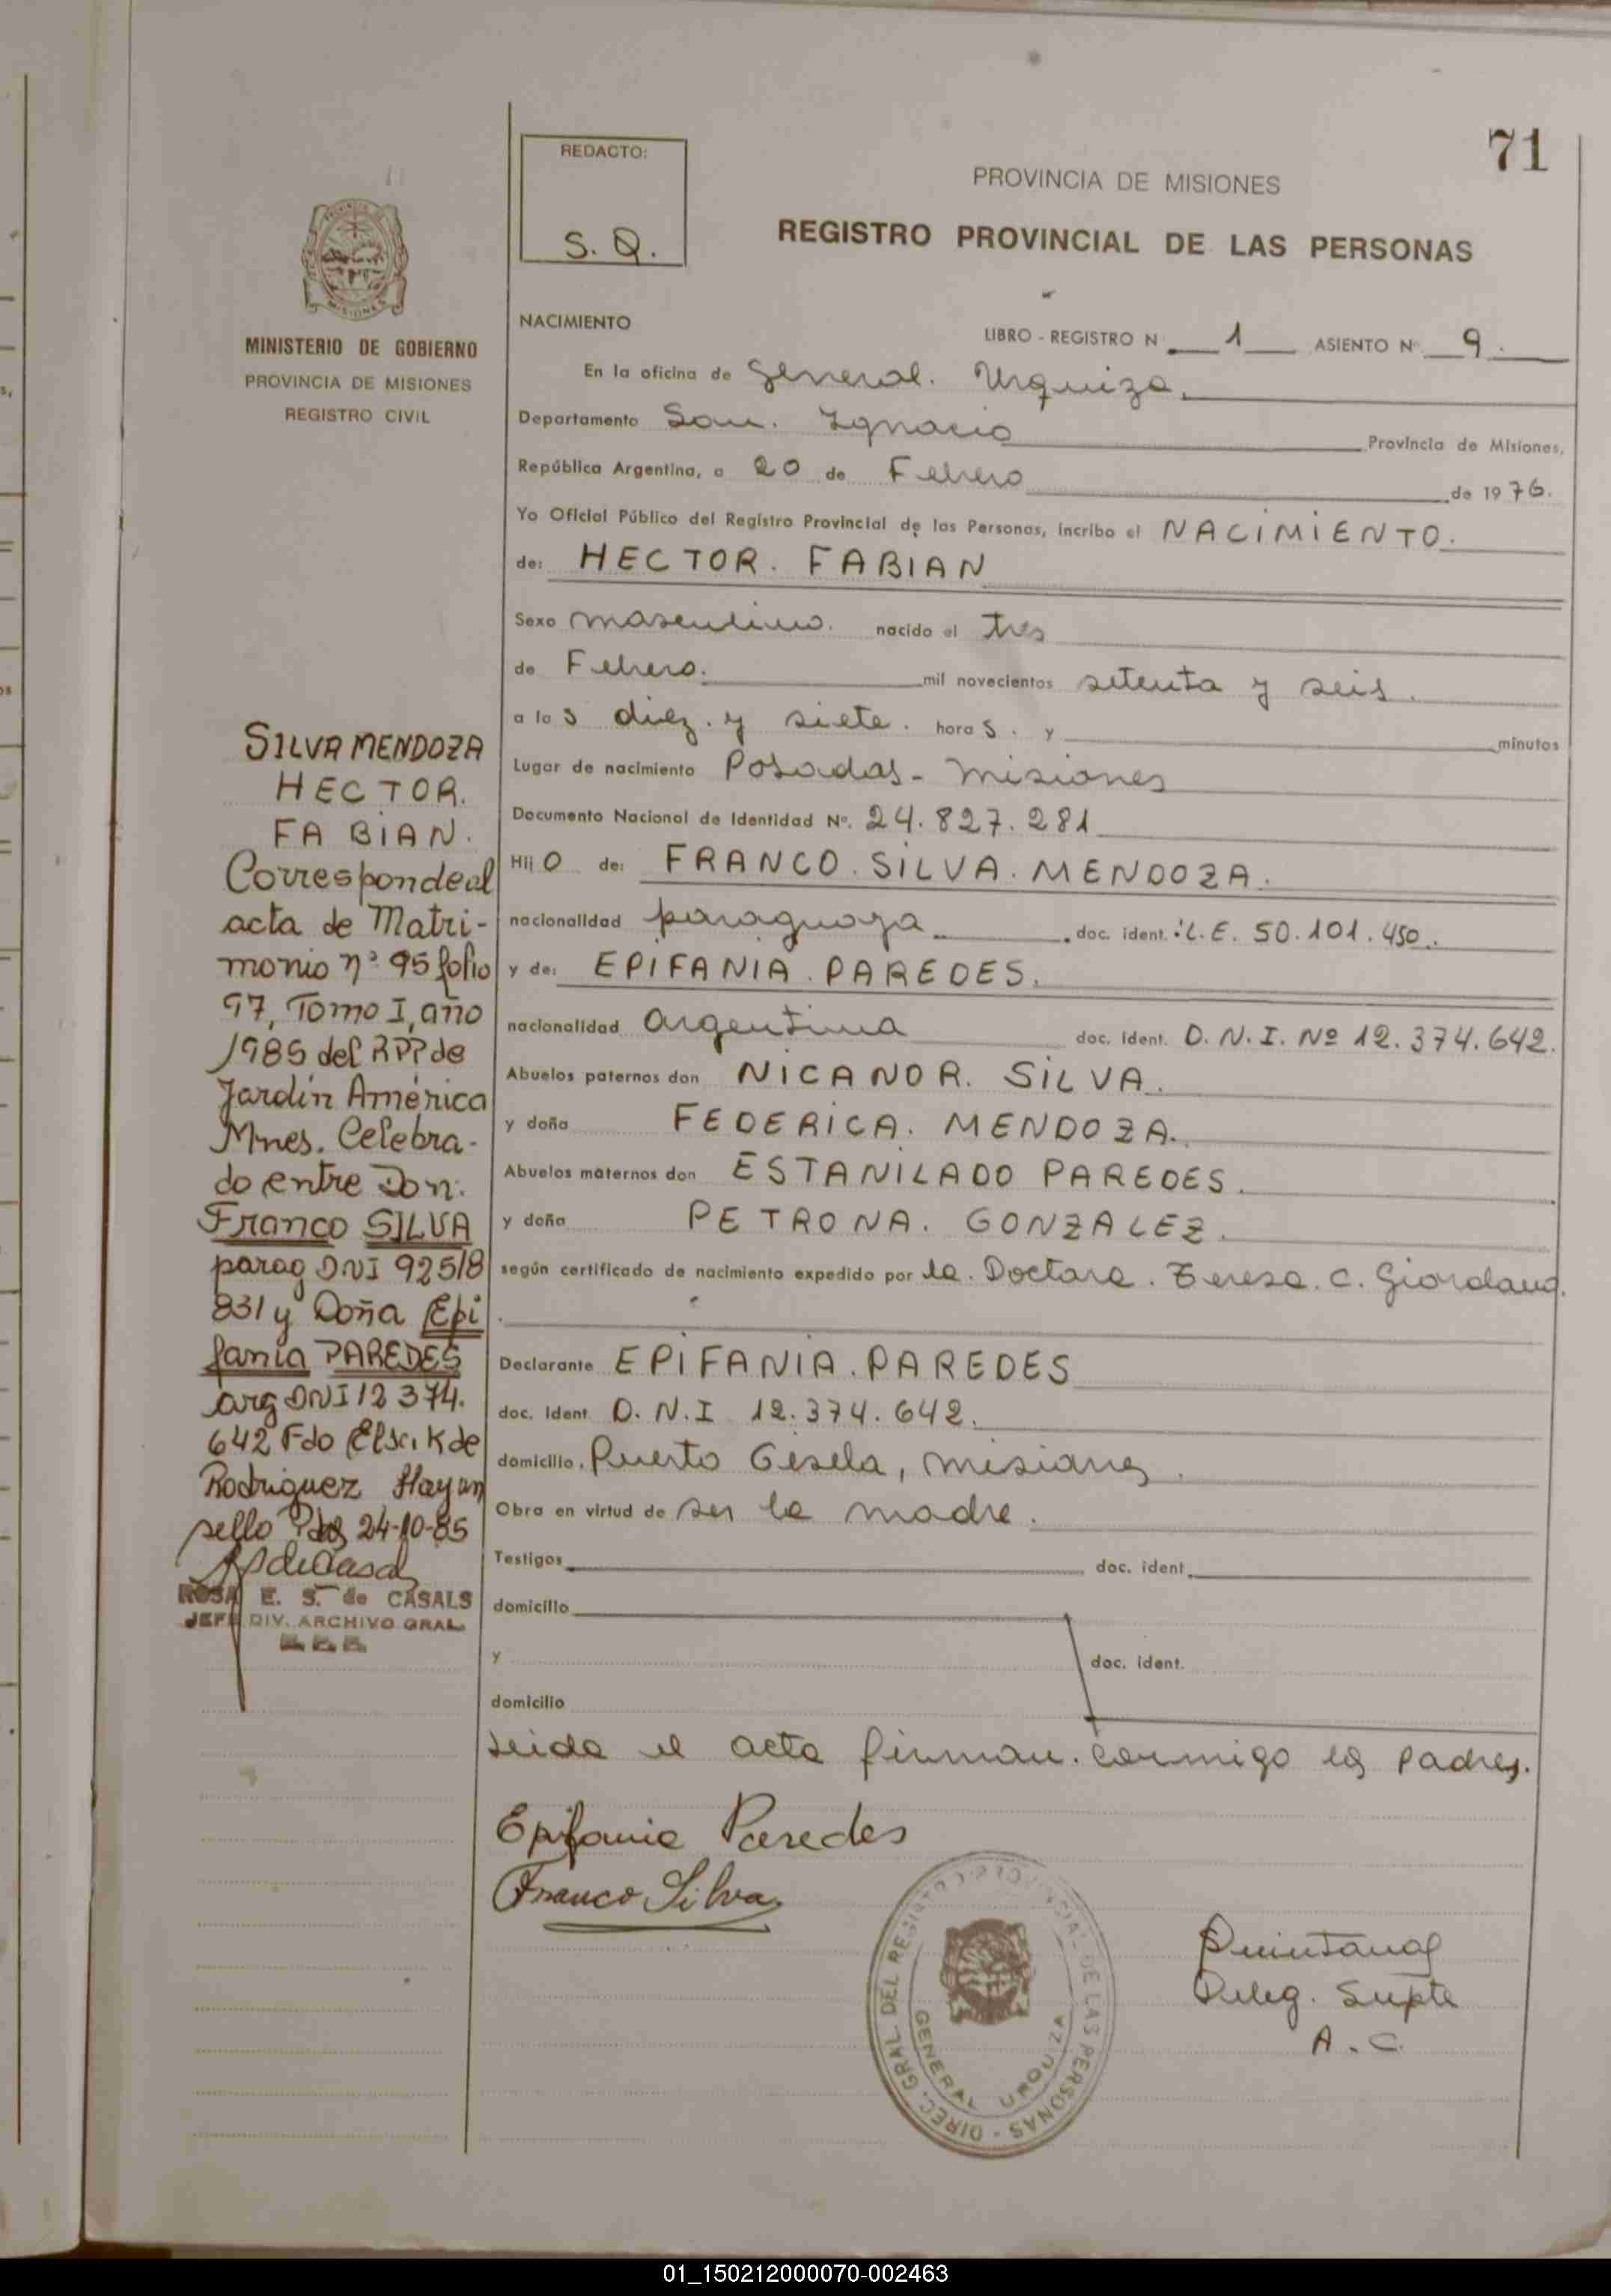 71
REDACTO:
S. Q.
PROVINCIA DE MISIONES
REGISTRO PROVINCIAL DE LAS PERSONAS
MISIONES
MINISTERIO DE GOBIERNO
PROVINCIA DE MISIONES
REGISTRO CIVIL
NACIMIENTO
LIBRO - REGISTRO N 1 ASIENTO Nº 9.
En la oficina de General. Urquiza.
Departamento San. Ignacio Provincia de Misiones,
República Argentina, a 20 de Febrero de 1976.
Yo Oficial Público del Registro Provincial de las Personas, incribo el NACIMIENTO.
de: HECTOR. FABIAN
Sexo masculino. nacido el tres
de Febrero. mil novecientos setenta y seis.
a las diez. y siete. horas. y minutos
Lugar de nacimiento Posadas- Misiones
Documento Nacional de Identidad Nº. 24.827.281
Hijo de: FRANCO. SILVA. MENDOZA.
nacionalidad paraguaya. doc. ident.: L.E. 50.101.450.
y de: EPIFANIA. PAREDES.
nacionalidad Argentina doc. ident. D.N.I. Nº 12.374.642.
Abuelos paternos don NICANOR. SILVA.
y doña FEDERICA. MENDOZA.
Abuelos maternos don ESTANILADO PAREDES.
y doña PETRONA. GONZALEZ.
según certificado de nacimiento expedido por la. Doctora. Teresa. C. Giordano.
Declarante EPIFANIA. PAREDES
doc. Ident. D.N.I 12.374.642.
domicilio. Puerto Gisela, Misiones.
Obra en virtud de ser la madre.
Testigos doc. ident.
domicilio
y doc. ident.
domicilio
Leida el acta firman. conmigo los padres.
Epifania Paredes
Franco Silva
Quintana
Deleg. Supte
A. C.
DIREC. GRAL. DEL REGISTRO PROVINCIAL DE LAS PERSONAS -
GENERAL URQUIZA
SILVA MENDOZA
HECTOR.
FABIAN.
Corresponde al
acta de Matri-
monio nº 95 folio
97, Tomo I, año
1985 del RPP de
Jardín América
Mnes. Celebra-
do entre Don.
Franco SILVA
parag DNI 92518
831 y Doña Epi
fania PAREDES
arg DNI 12 374.
642 Fdo Elsa K de
Rodriguez Hay un
sello Pdas 24-10-85
ROSA E. S. de CASALS
JEFE DIV. ARCHIVO GRAL.
01_150212000070-002463